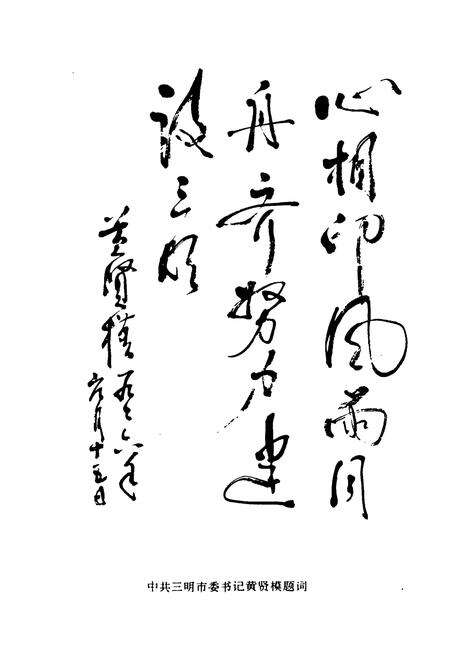 心相印风雨同
舟齐努力建
设三明
黄贤模一九九六年
六月十五日
中共三明市委书记黄贤模题词